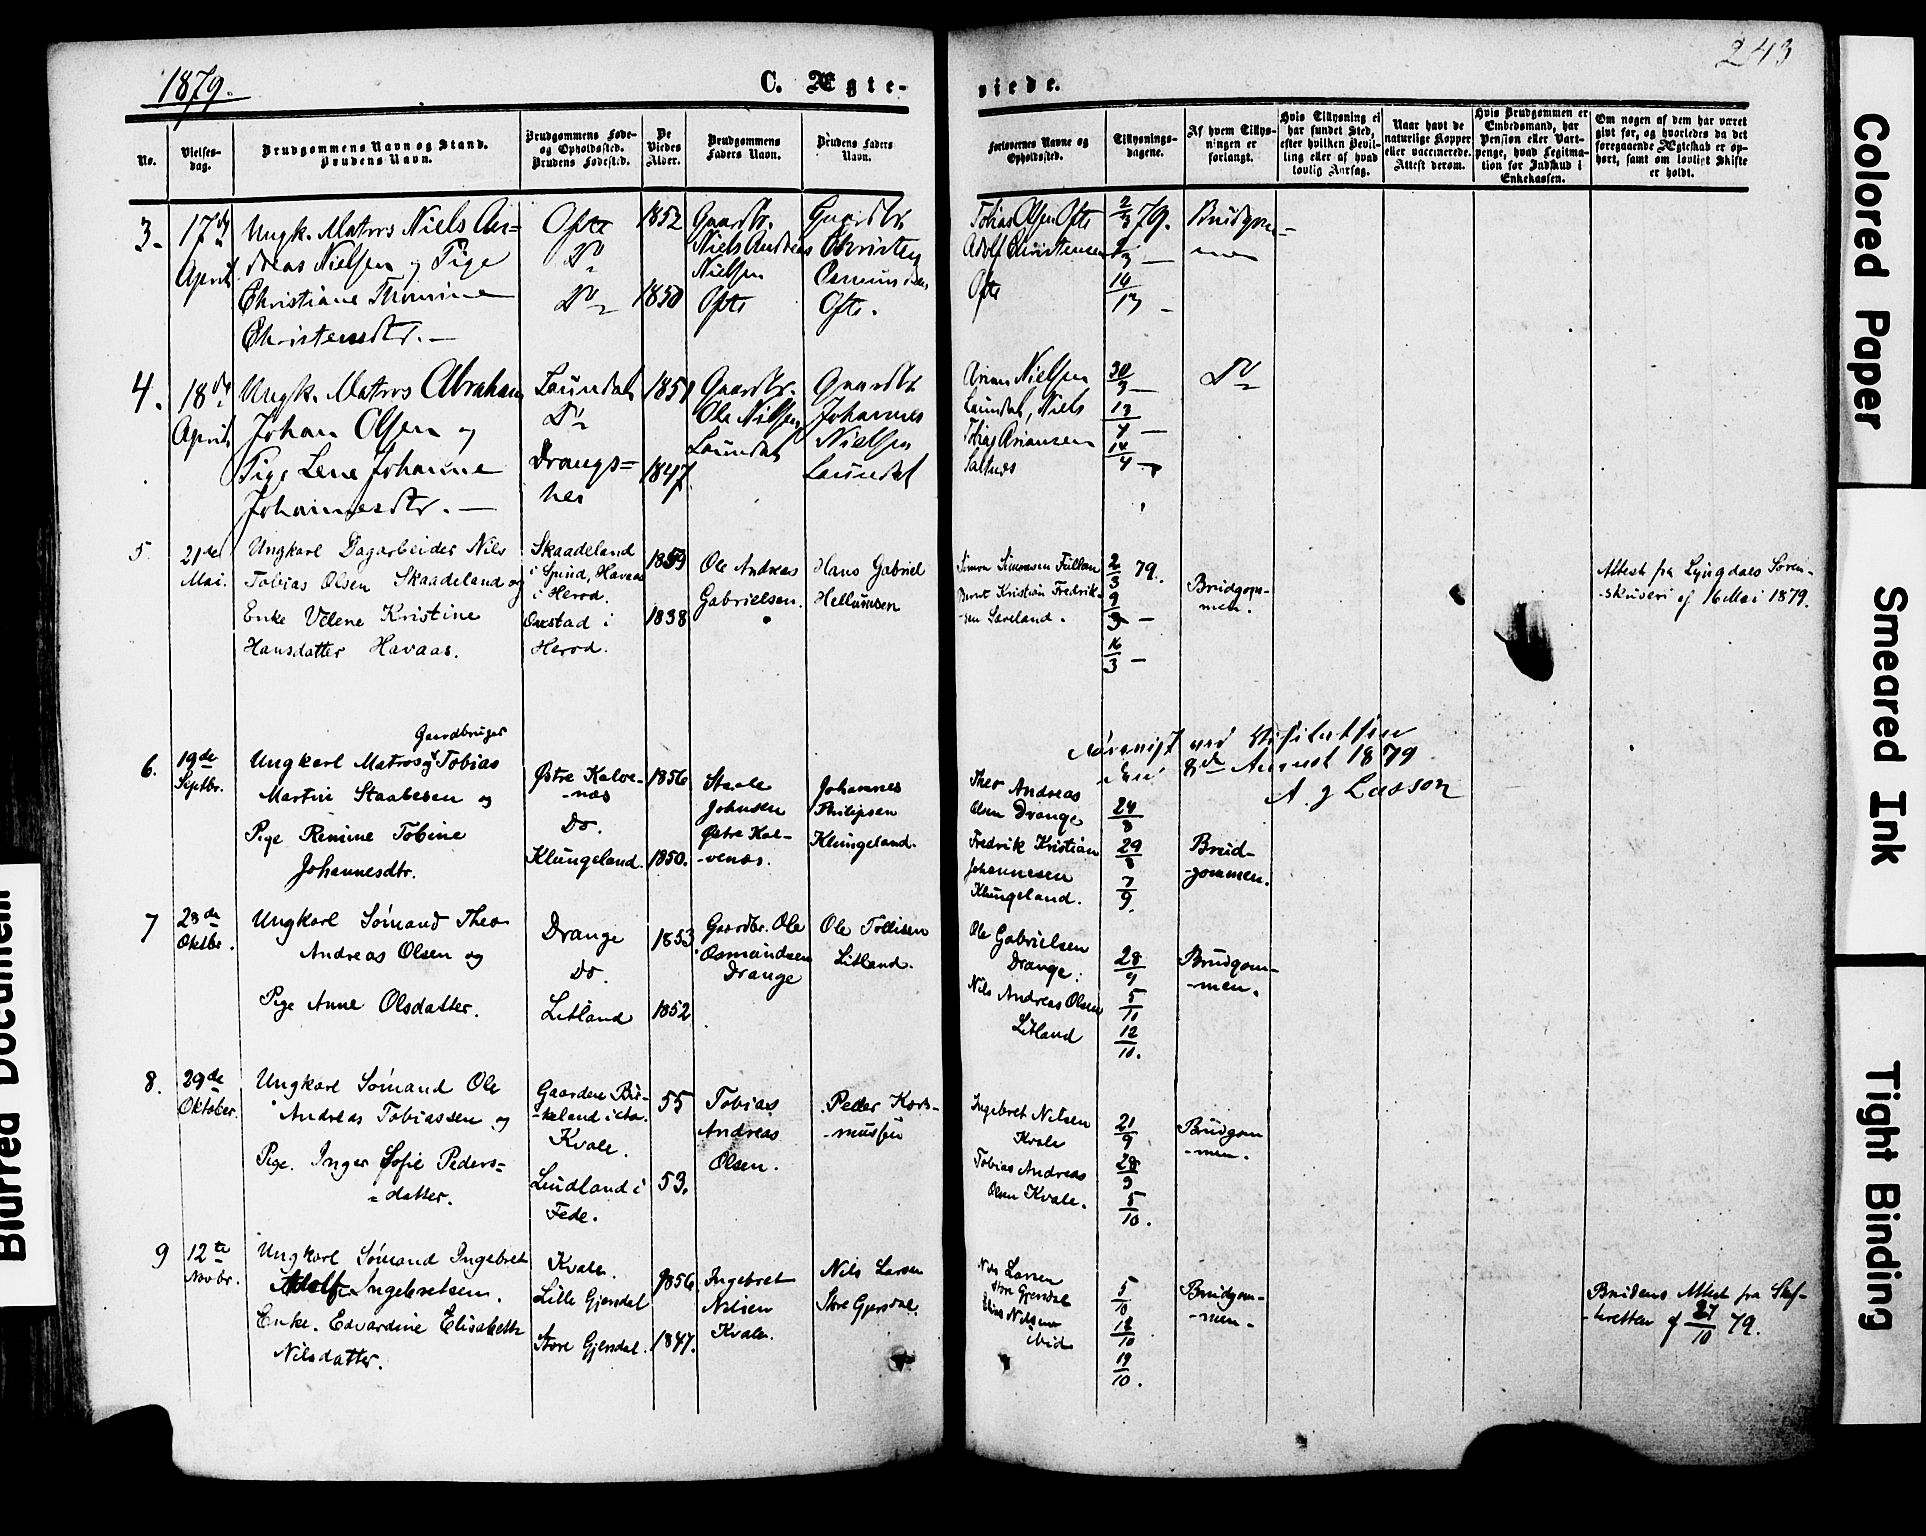 1879.
C. Ægte-
viede.
243
No.
Vielses-
dag.
Brudgommens Navn og Stand.
Brudens Navn.
Brudgommens Føde-
og Opholdssted.
Brudens Fødested.
De
Viedes
Alder.
Brudgommens
Faders Navn.
Brudens Faders
Navn.
Forlovernes Navne og
Opholdssted.
Tillysnings-
dagene.
Af hvem Tillys-
ningen er
forlangt.
Hvis Tillysning ei
har fundet Sted,
efter hvilken Bevil-
ling eller af hvad
lovlig Aarsag.
Naar havt de
naturlige Kopper
eller vaccinerede.
Attest derom.
Hvis Brudgommen er
Embedsmand, har
Pension eller Vart-
penge, hvad Legitma-
tion for Indskud i
Enkekassen.
Om nogen af dem har været
givt før, og hvorledes da det
foregaaende Ægteskab er op-
hørt, samt om lovligt Skifte
er holdt.
3.
17de
April
Ungk. Matros Niels An-
dreas Nielsen og Pige
Christiane Thomine
Christensdtr.
Ofte
Do
Do
1852
1850
Gaardbr.
Niels Andreas
Nielsen
Ofte
Gaardbr.
Christen
Ofte.
Tobias Olsen Ofte
Adolf Christensen
Ofte
2/3 79.
Brudgom-
men
4.
18de
April
Ungk. Matros Abraham
Johan Olsen og
Pige Lene Johanne
Johannesdtr.
Laundal
Do
Drangs-
hei
1851
1847
Gaardbr.
Ole Nielsen
Laundal
Gaardbr.
Johannes
Nielsen
Laundal
Arian Nielsen
Laundal, Niels
Tobias Ariansen
30/3
13/4
14/4
Do
5
21de
Mai.
Ungkarl Dagarbeider Nils
Tobias Olsen Skaadeland og
Enke Velene Kristine
Hansdatter Havaas.
Skaadeland
i Spind, Havaas
i Herod.
Oxstad i
Herod.
1859
1838
Ole Andreas
Gabrielsen.
Hans Gabriel
Hellumsen
Simon Simonsen
Bernt Kristian Fredrik-
sen Saveland.
2/3 79.
9/3
16/3
Brudgom-
men.
Attest fra Lyngdals Soren-
skriveri af 16 Mai 1879.
ved Visitatsen
den 8de August 1879
6.
19de
Septbr.
Gaardbruger
Ungkarl Matros og Tobias
Martin Staalesen og
Pige Remine Tobine
Johannesdtr.
Østre Kalve-
-nes
Do.
Klungeland.
1856
1850.
Staale
Johnsen
Østre Kal-
-venes.
Johannes
Philipsen
Klungeland.
Theo Andreas
Olsen Drange
Fredrik Kristian
Johannesen
Klungeland.
24/8
29/8
7/9.
Brud-
-gommen.
7
28de
Oktbr.
Ungkarl Sømand Theo
Andreas Olsen og
Pige Anne Olsdatter.
Drange
Do.
Litland
1853
1852
Gaardbr. Ole
Osmundsen
Drange
Ole Tollisen
Litland.
Ole Gabrielsen
Drange.
Nils Andreas Olsen
Litland
28/9
5/10
12/10.
Brudgom-
-men.
8.
29de
Oktober.
Ungkarl Sømand Ole
Andreas Tobiassen og
Pige. Inger Sofie Peders-
-datter.
Gaarden Bir-
-keland i
Kvale.
Lindland i
Fede.
55
53.
Tobias
Andreas
Olsen.
Peder Kors-
-mussen
Ingebret Nilsen
Kvale
Tobias Andreas
Olsen Kvale.
21/9
28/9
5/10.
Brudgom
-men.
9
12te
Novbr.
Ungkarl Sømand Ingebret
Adolf Ingebretsen.
Enke. Edvardine Elisabeth
Nilsdatter.
Kvale.
Lille Gjersdal
Store Gjersdal.
1856
1847.
Ingebret
Nilsen
Kvale.
Nils Larsen
Store Gjersdal.
Nils Larsen
Store Gjersdal
Elias Nilsen
ibid
5/10
12/10
19/10.
Brudgom-
-men.
Brudens Attest fra Skif-
-teretten af 27/10 79.
Colored Paper
Smeared Ink
Tight Binding
Blurred Document